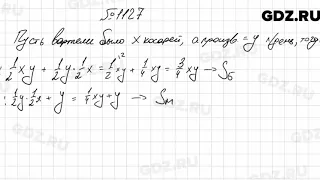 GDZ.RU
№ 1127
Пусть в артели было x косарей, а произв = y г/день, тогда
+ 1/2 xy + 1/2 y · 1/2 x = 1/2 xy + 1/4 xy = 3/4 xy → Sб
: 1/2 y · 1/2 x + y = 1/4 xy + y → Sм
GDZ.RU